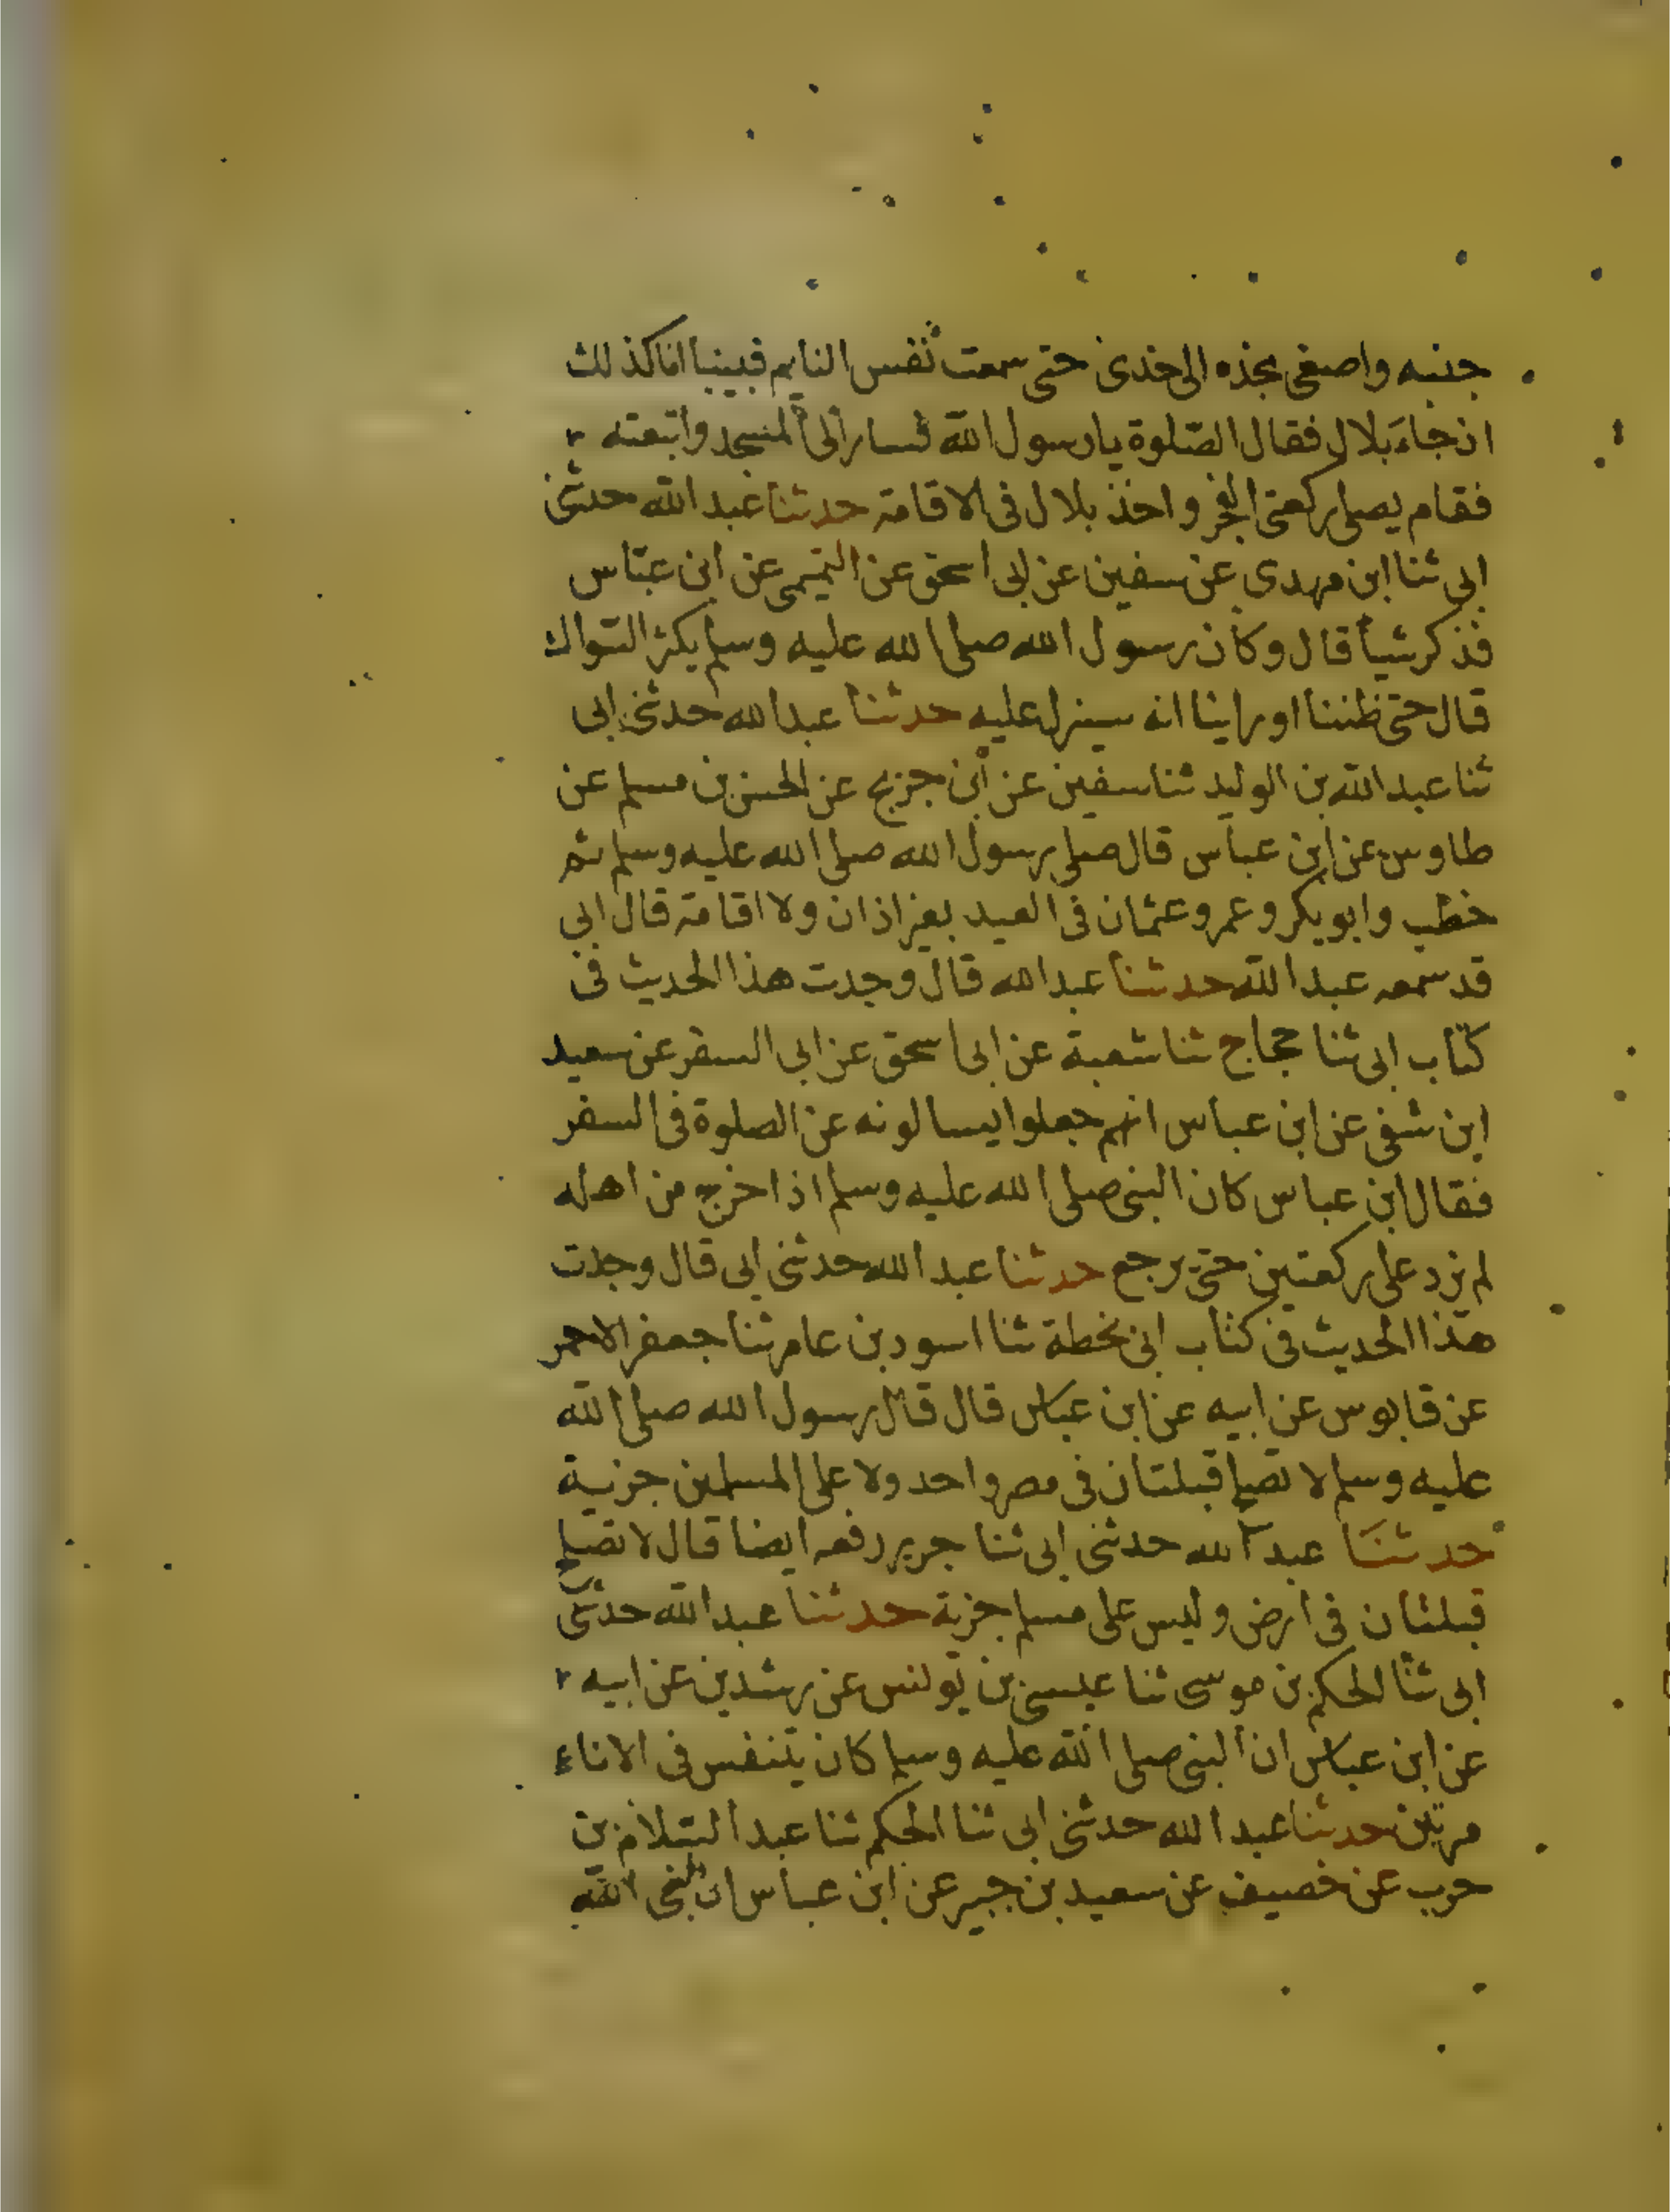 جنبه واصغى بخذه الى خذى حتى سمعت نفس النايم فبينا انا كذلك
اذ جاء بلال فقال الصّلوة يا رسول الله فسار الى المسجد واتبعته
فقام يصلى ركعتى الفجر واخذ بلال فى الاقامة حدثنا عبد الله حدثنى
ابى ثنا ابن مهدى عن سفين عن ابى اسحق عن التميمى عن ابن عبّاس
فذكر شيأ قال وكان رسول الله صلى الله عليه وسلم يكثر السّواك
قال حتى ظننا او راينا انه سينزل عليه حدثنا عبد الله حدثنى ابى
ثنا عبد الله بن الوليد ثنا سفين عن ابن جريج عن الحسن بن مسلم عن
طاوس عن ابن عباس قال صلى رسول الله صلى الله عليه وسلم ثم
خطب وابو بكر وعمر وعثمان فى العيد بغير اذان ولا اقامة قال ابى
قد سمعه عبد الله حدثنا عبد الله قال وجدت هذا الحديث فى
كتاب ابى ثنا حجاج ثنا شعبة عن ابى اسحق عن ابى السفر عن سعيد
ابن شفى عن ابن عباس انهم جعلوا يسالونه عن الصلوة فى السفر
فقال ابن عباس كان النبى صلى الله عليه وسلم اذا خرج من اهله
لم يزد على ركعتين حتى يرجع حدثنا عبد الله حدثنى ابى قال وجدت
هذا الحديث فى كتاب ابى بخطة ثنا اسود بن عامر ثنا جعفر الاحمر
عن قابوس عن ابيه عن ابن عباس قال قال رسول الله صلى الله
عليه وسلم لا تصلح قبلتان فى مصر واحد ولا على المسلمين جزية
حدثنا عبد الله حدثنى ابى ثنا جرير رفعه ايضا قال لا تصلح
قبلتان فى ارض وليس على مسلم جزية حدثنا عبد الله حدثنى
ابى ثنا الحكم بن موسى ثنا عيسى بن يونس عن رشدين عن ابيه
عن ابن عباس ان النبى صلى الله عليه وسلم كان يتنفس فى الاناء
مرتين حدثنا عبد الله حدثنى ابى ثنا الحكم ثنا عبد السّلام بن
حرب عن خصيف عن سعيد بن جبير عن ابن عباس ان النبى الله